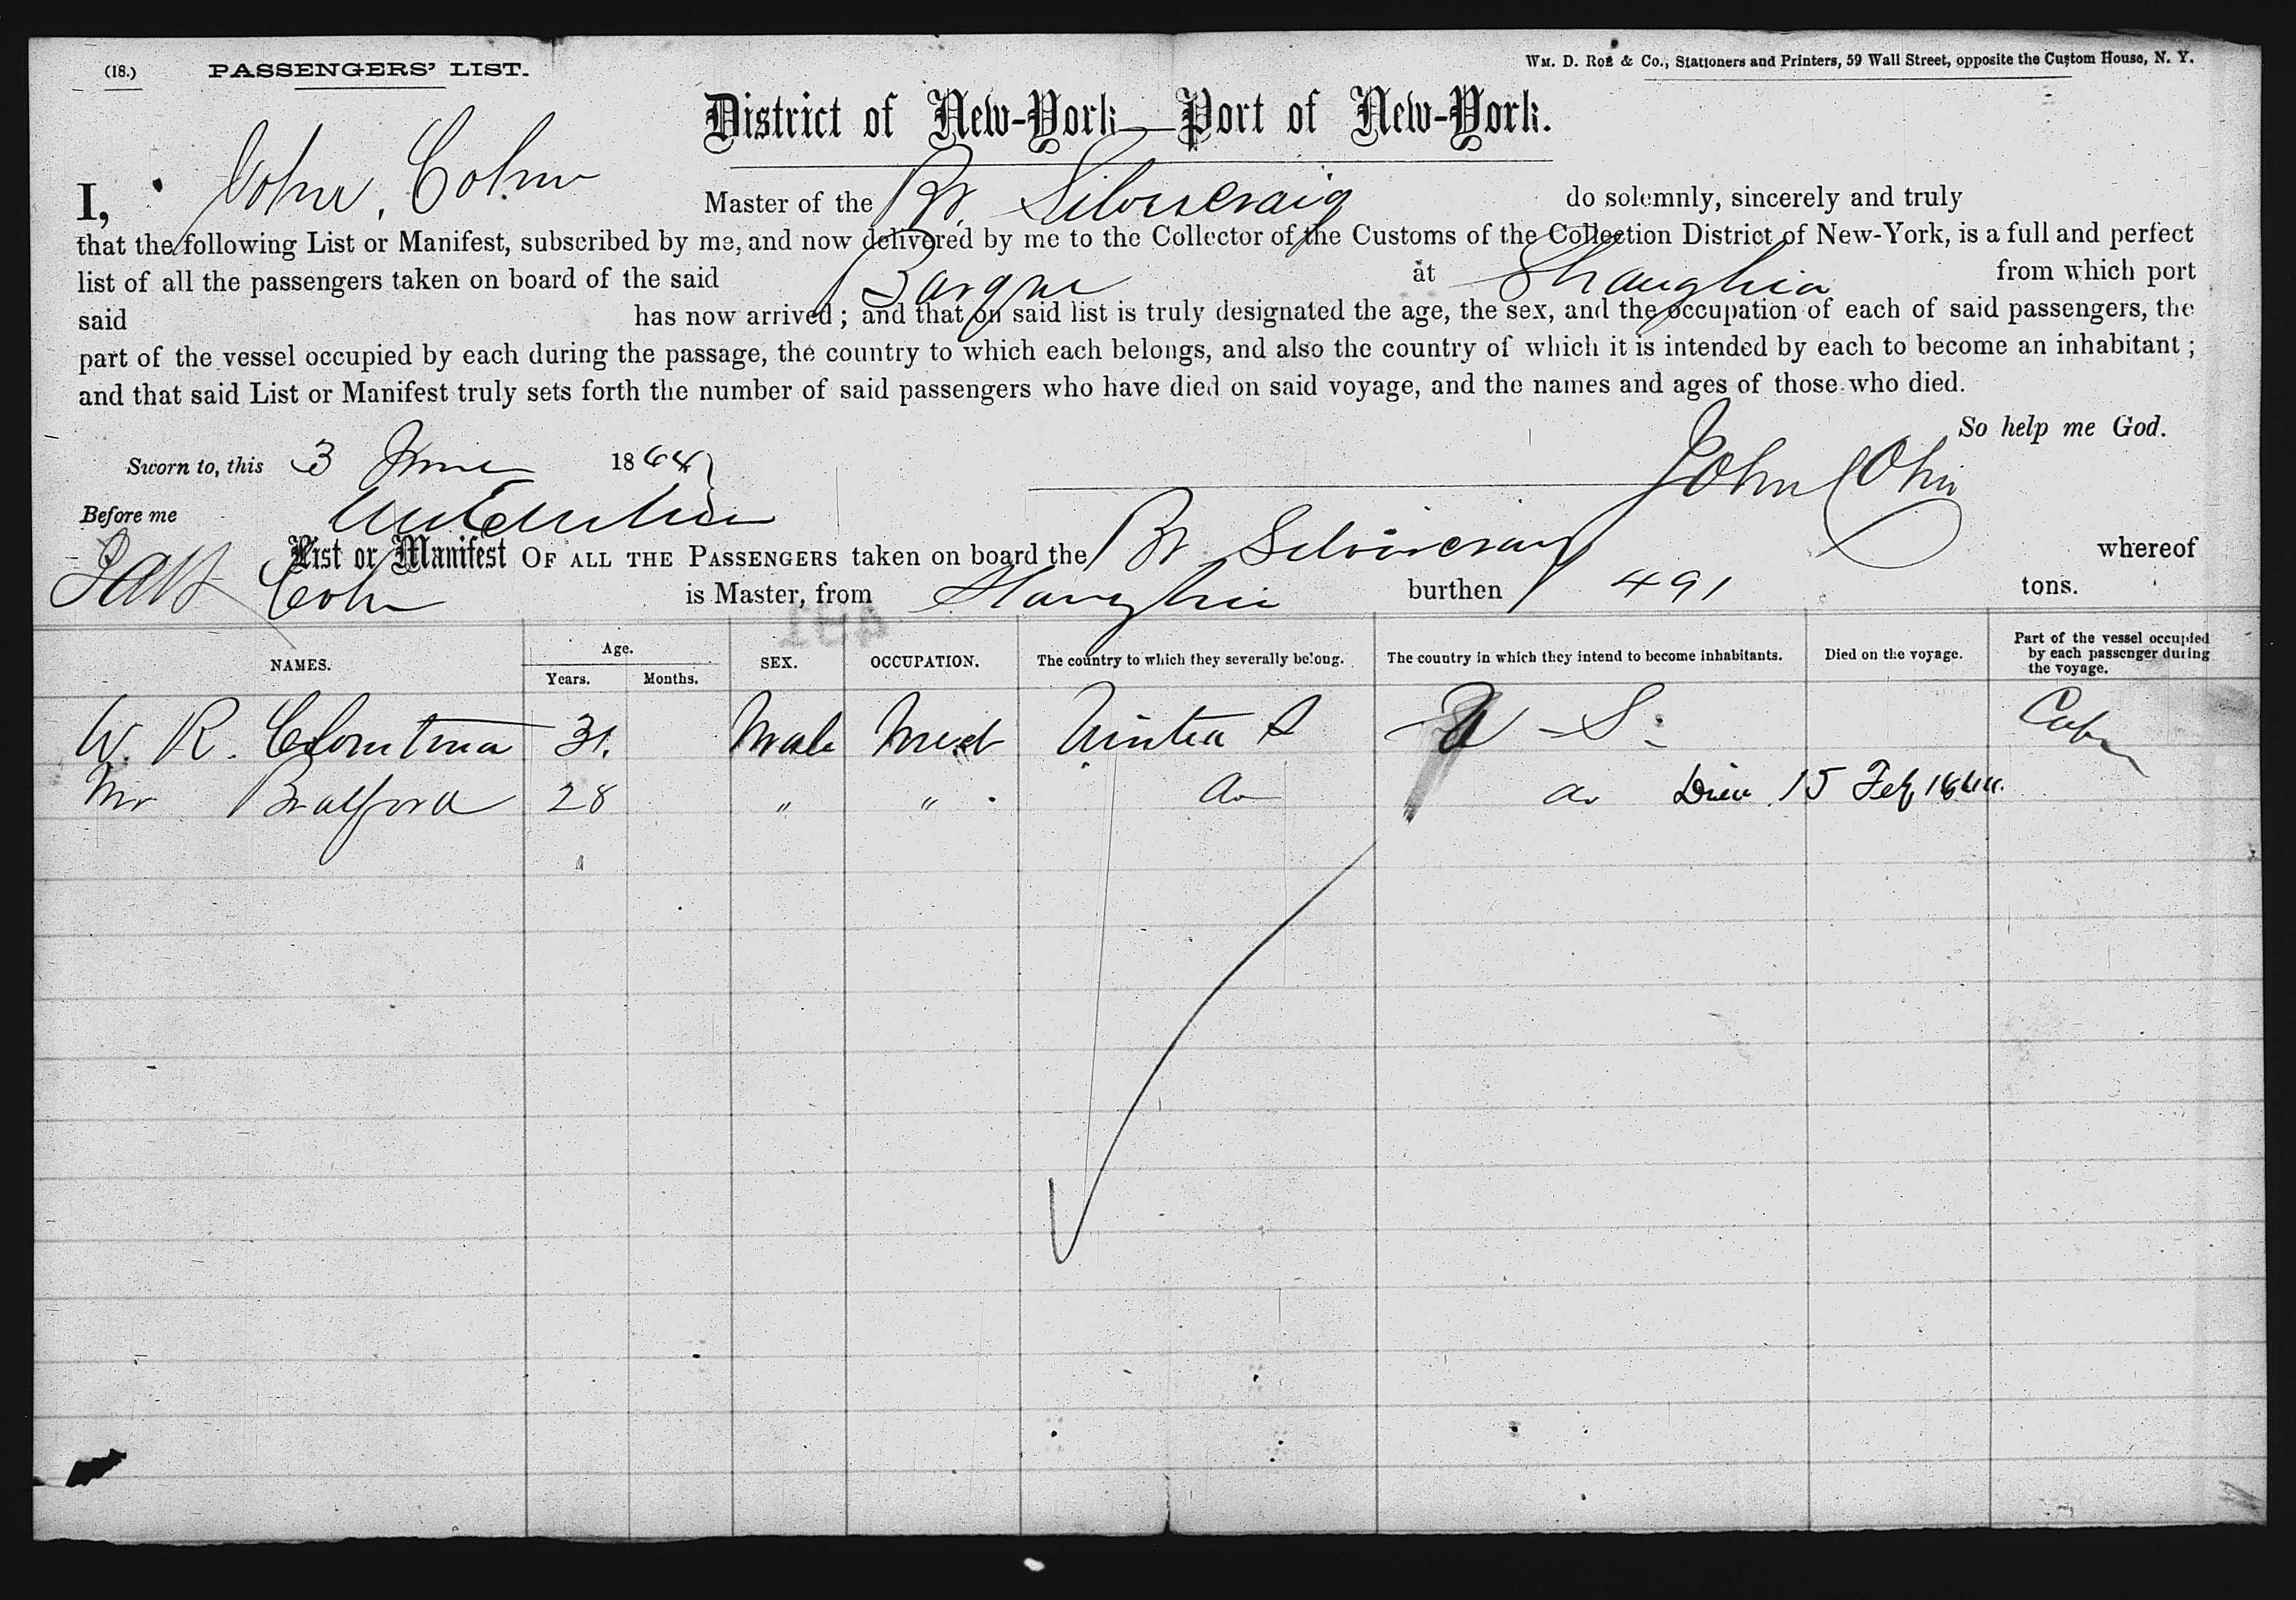 (18.) PASSENGERS' LIST. Wm. D. Roe & Co., Stationers and Printers, 59 Wall Street, opposite the Custom House, N. Y.
District of New-York—Port of New-York.
I, John Cohn Master of the Br. Silvercraig do solemnly, sincerely and truly
that the following List or Manifest, subscribed by me, and now delivered by me to the Collector of the Customs of the Collection District of New-York, is a full and perfect
list of all the passengers taken on board of the said Barque at Shanghia from which port
said has now arrived; and that on said list is truly designated the age, the sex, and the occupation of each of said passengers, the
part of the vessel occupied by each during the passage, the country to which each belongs, and also the country of which it is intended by each to become an inhabitant;
and that said List or Manifest truly sets forth the number of said passengers who have died on said voyage, and the names and ages of those who died.
So help me God.
Sworn to, this 3 June 1864 John Cohn
Before me
List or Manifest OF ALL THE PASSENGERS taken on board the Br Silvercraig whereof
Cohn is Master, from Shanghia burthen 491 tons.
491
NAMES. Age. Years. Months. SEX. OCCUPATION. The country to which they severally belong. The country in which they intend to become inhabitants. Died on the voyage. Part of the vessel occupied by each passenger during the voyage.
W. R. 31. Male United S U S.
Mr Bradford 28 " " do do Died 15 Feb 1864.